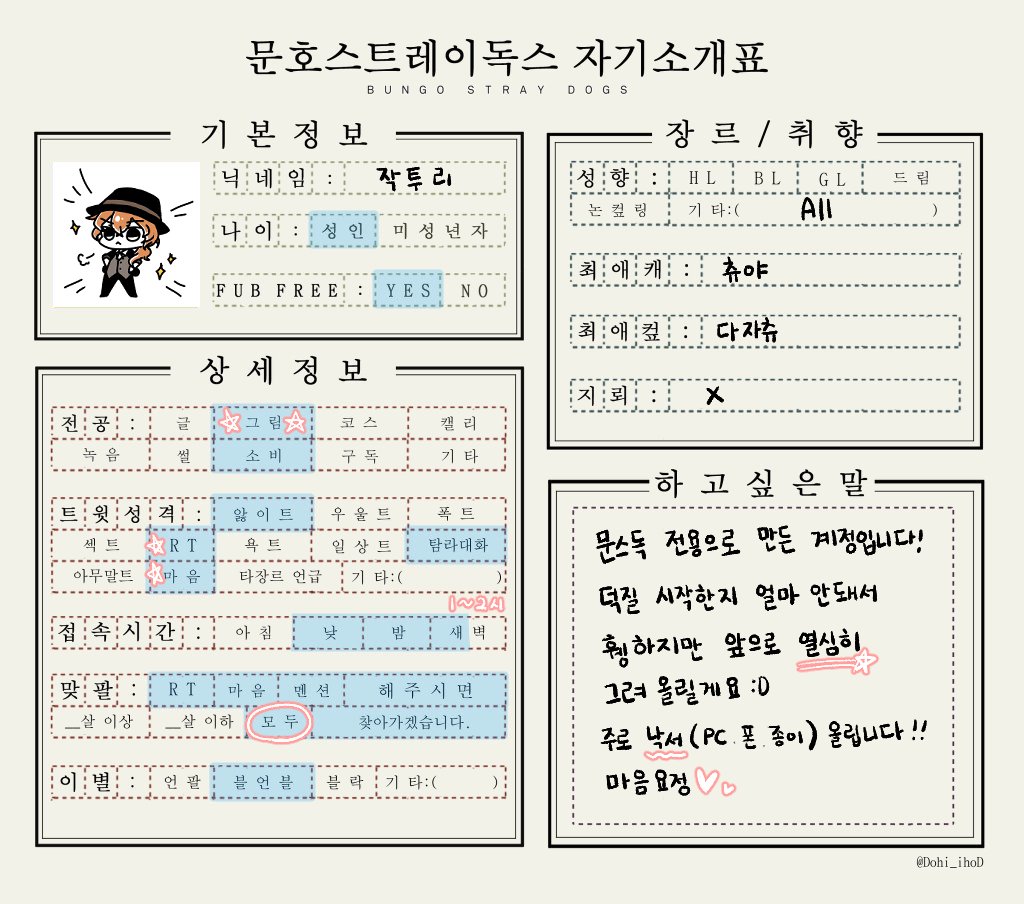 문호스트레이독스 자기소개표
BUNGO STRAY DOGS
기본정보
닉네임 : 작투리
나이 : 성인 미성년자
FUB FREE : YES NO
상세정보
전공 : 글 그림 코스 캘리
녹음 썰 소비 구독 기타
트윗성격 : 앓이트 우울트 폭트
섹트 RT 욕트 일상트 탐라대화
아무말트 마음 타장르 언급 기타:( )
1~2시
접속시간 : 아침 낮 밤 새벽
맞팔 : RT 마음 멘션 해주시면
__살 이상 __살 이하 모두 찾아가겠습니다.
이별 : 언팔 블언블 블락 기타:( )
장르/취향
성향 : HL BL GL 드림
논컾링 기타:( All )
최애캐 : 츄야
최애컾 : 다자츄
지뢰 : X
하고싶은말
문스독 전용으로 만든 계정입니다!
덕질 시작한지 얼마 안돼서
휑하지만 앞으로 열심히
그려 올릴게요 :D
주로 낙서(PC.폰.종이) 올립니다!!
마음요정♡♡
@Dohi_ihoD